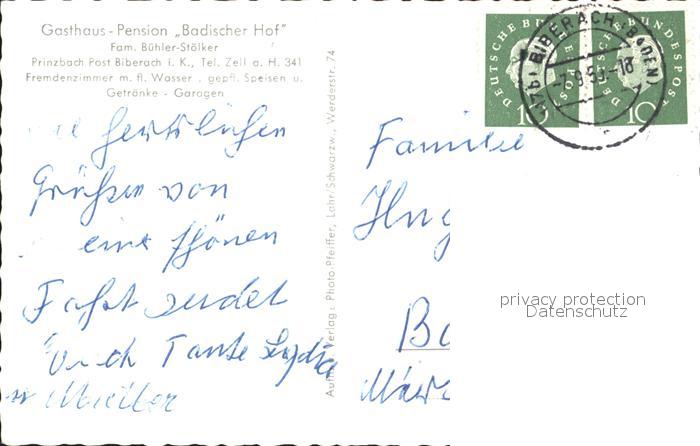 Gasthaus - Pension „Badischer Hof"
Fam. Bühler-Stölker
Prinzbach Post Biberach i. K., Tel. Zell a. H. 341
Fremdenzimmer m. fl. Wasser . gepfl. Speisen u.
Getränke - Garagen
herzlichen
Grüßen von
eine schönen
Fahrt sendet
Tante Lydia
Verlag: Photo-Pfeiffer, Lahr/Schwarzw., Werderstr. 74
Familie
Hug
DEUTSCHE BUNDESPOST
10
DEUTSCHE BUNDESPOST
10
BIBERACH (BADEN)
privacy protection
Datenschutz